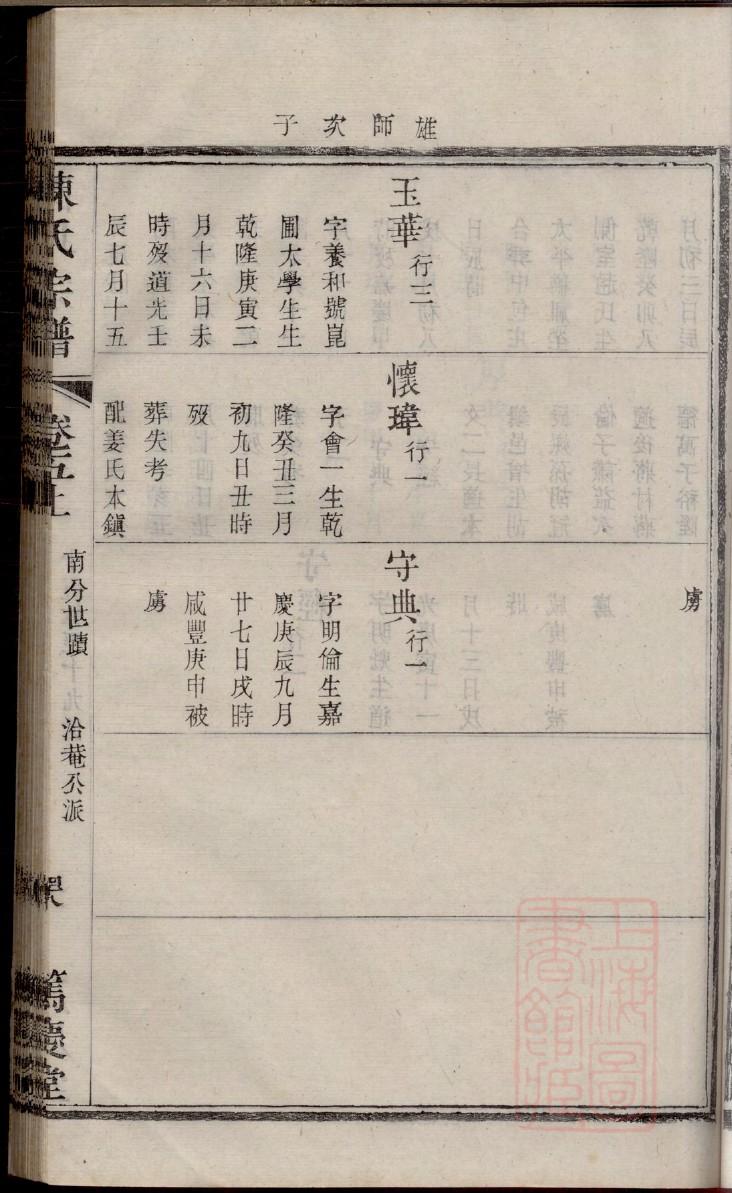 雄師次子
玉華行三
字養和號崑
圃太學生生
乾隆庚寅二
月十六日未
時歿道光壬
辰七月十五
懷瑋行一
字會一生乾
隆癸丑三月
初九日丑時
歿
葬失考
配姜氏本鎭
虜
守典行一
字明倫生嘉
慶庚辰九月
廿七日戌時
咸豐庚申被
虜
陳氏宗譜
卷五上
南分世蹟
洽菴公派
篤慶堂
上海圖
書館藏